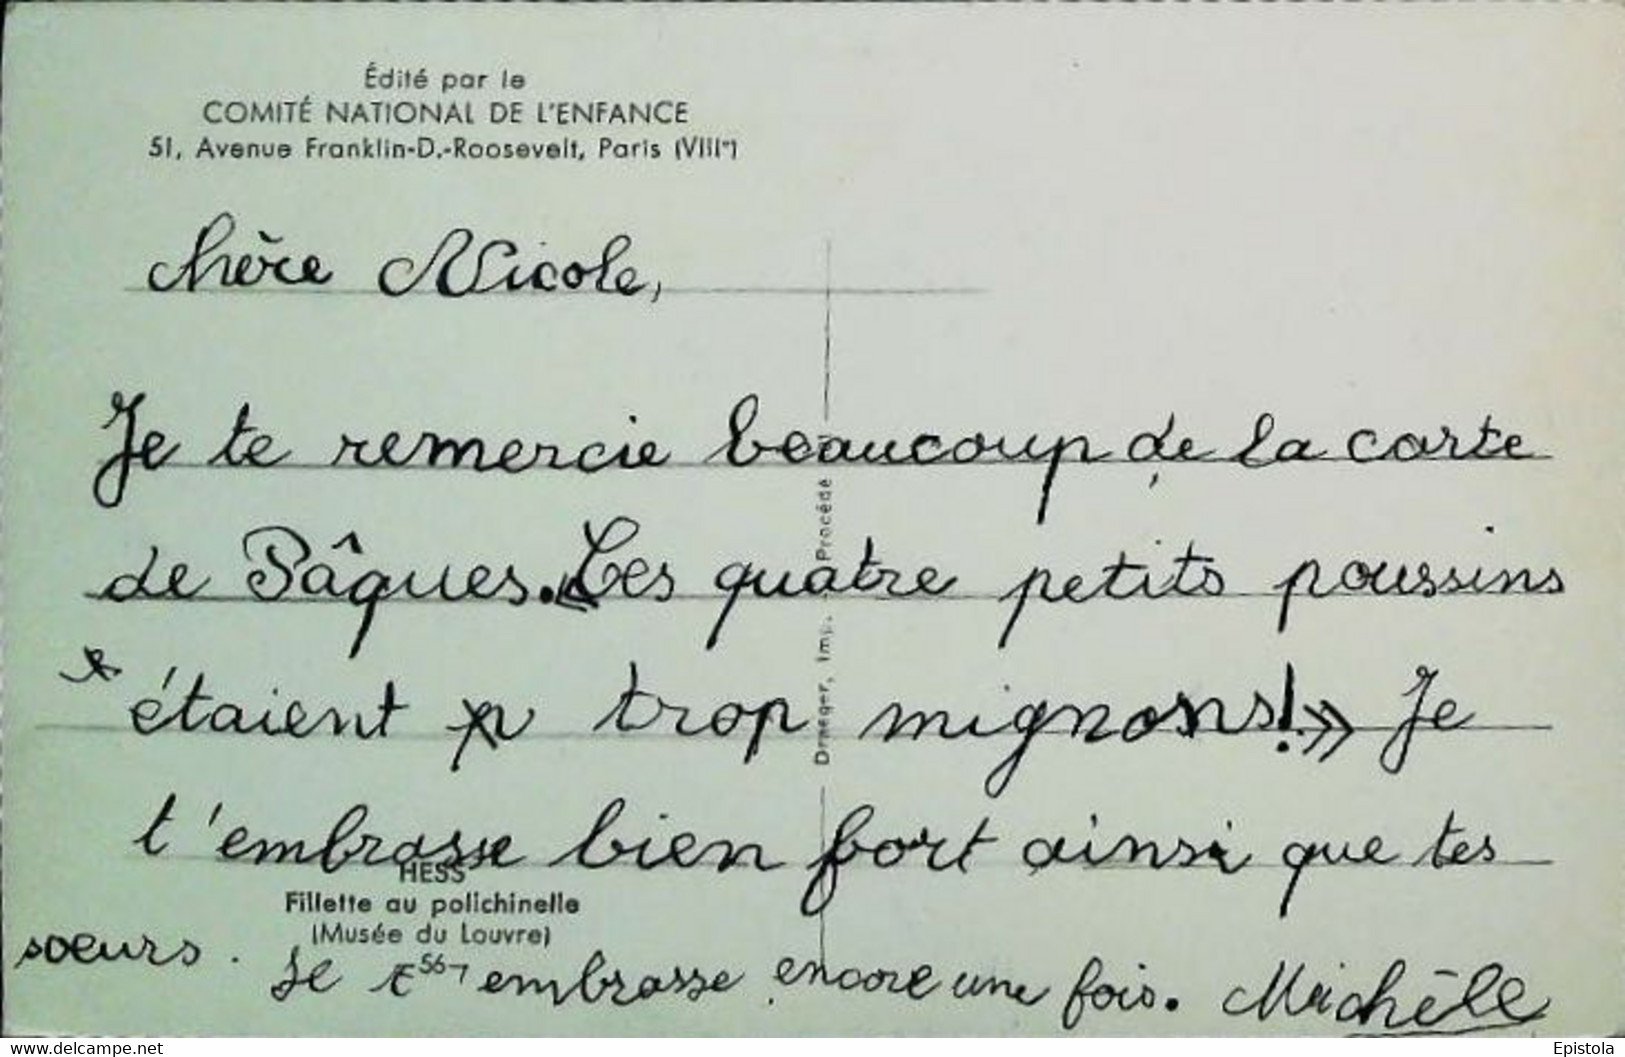 Édité par le
COMITÉ NATIONAL DE L'ENFANCE
51, Avenue Franklin-D.-Roosevelt, Paris (VIIIe)
Chère Nicole,
Je te remercie beaucoup de la carte
de Pâques. Les quatre petits poussins
étaient trop mignons!» Je
t'embrasse bien fort ainsi que tes
soeurs. Je t'embrasse encore une fois. Michèle
HESS
Fillette au polichinelle
(Musée du Louvre)
56
Draeger, Imp. Procédé
Epistola